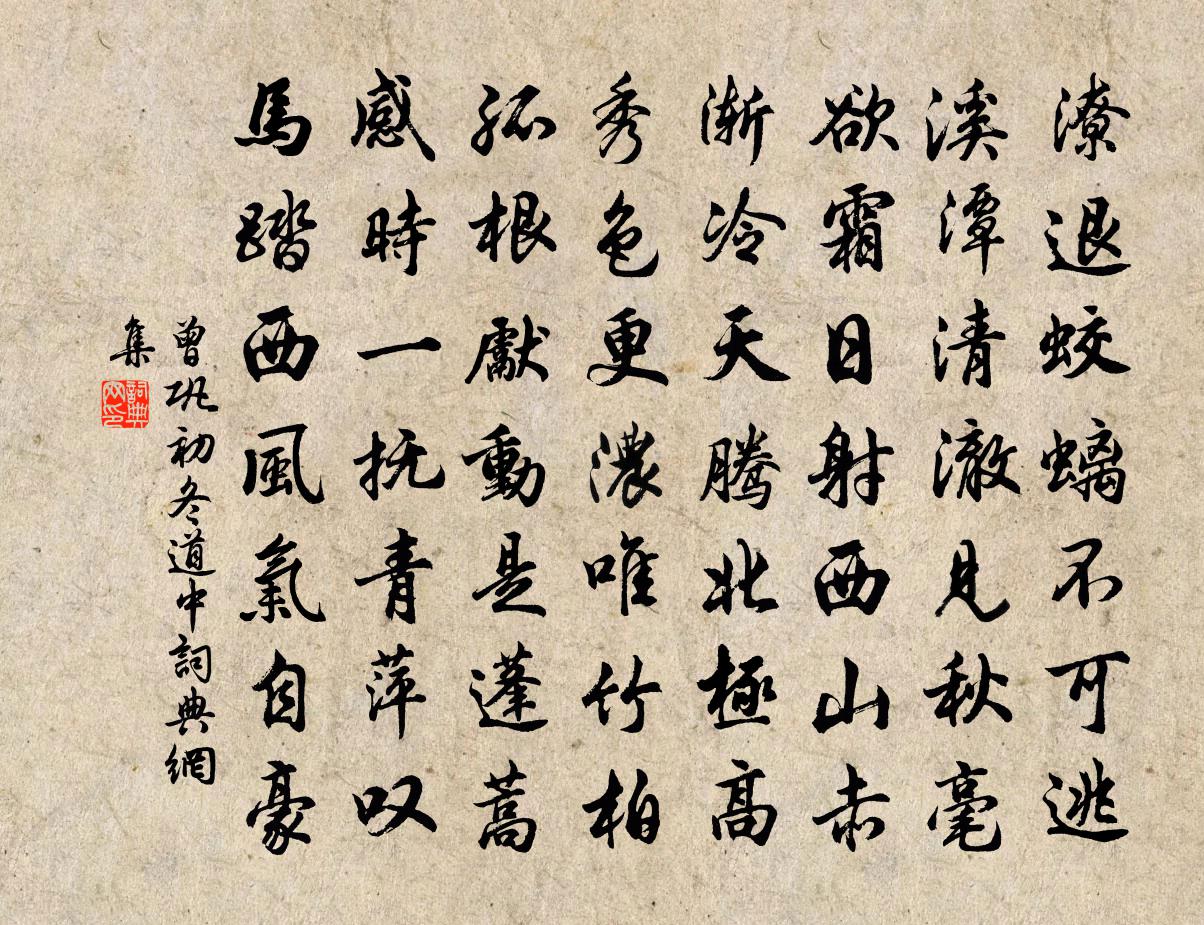 潦退蛟螭不可逃
溪潭清澈見秋毫
欲霜日射西山赤
漸冷天騰北極高
秀色更濃唯竹柏
孤根獻動是蓬蒿
感時一抚青萍叹
馬踏西風氣自豪
曾巩初冬道中詞典網
集
詞典
网印